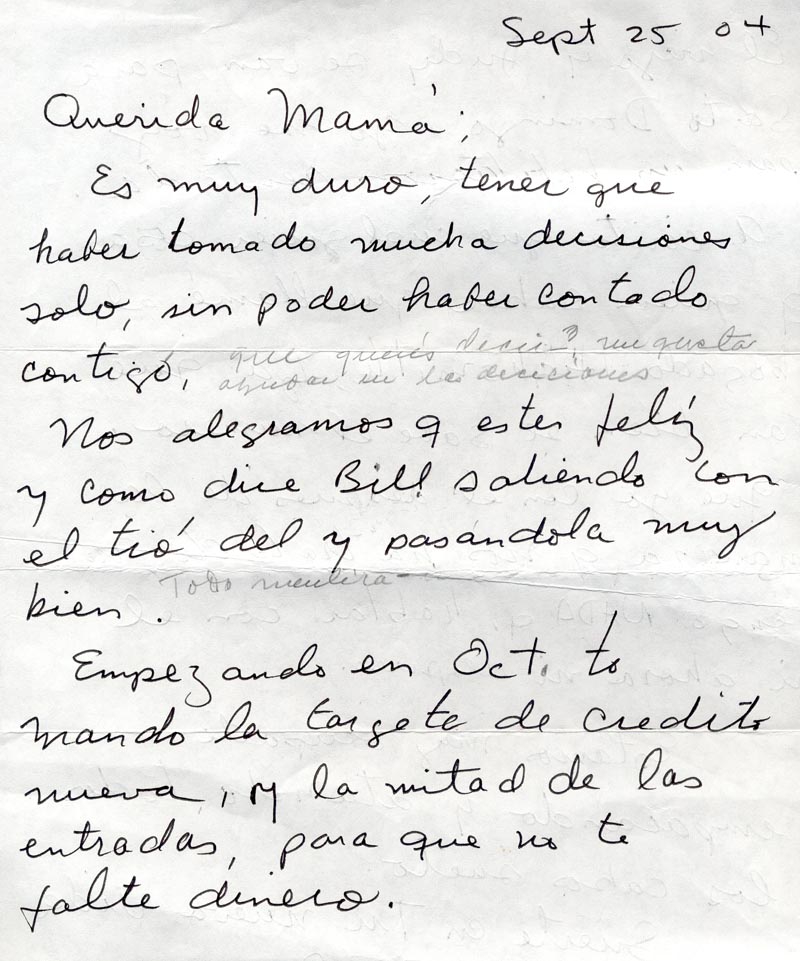 Sept 25 04
Querida Mamá;
Es muy duro, tener que
haber tomado mucha decisiones
solo, sin poder haber contado
contigó,
que querés decir? me gusta
en las deciciones
Nos alegramos q estes felíz
y como dice Bill saliendo con
el tió del y pasándola muy
Todo mentira
bien.
Empezando en Oct. to
mando la targeta de credito
nueva, y la mitad de las
entradas, para que no te
falte dinero.